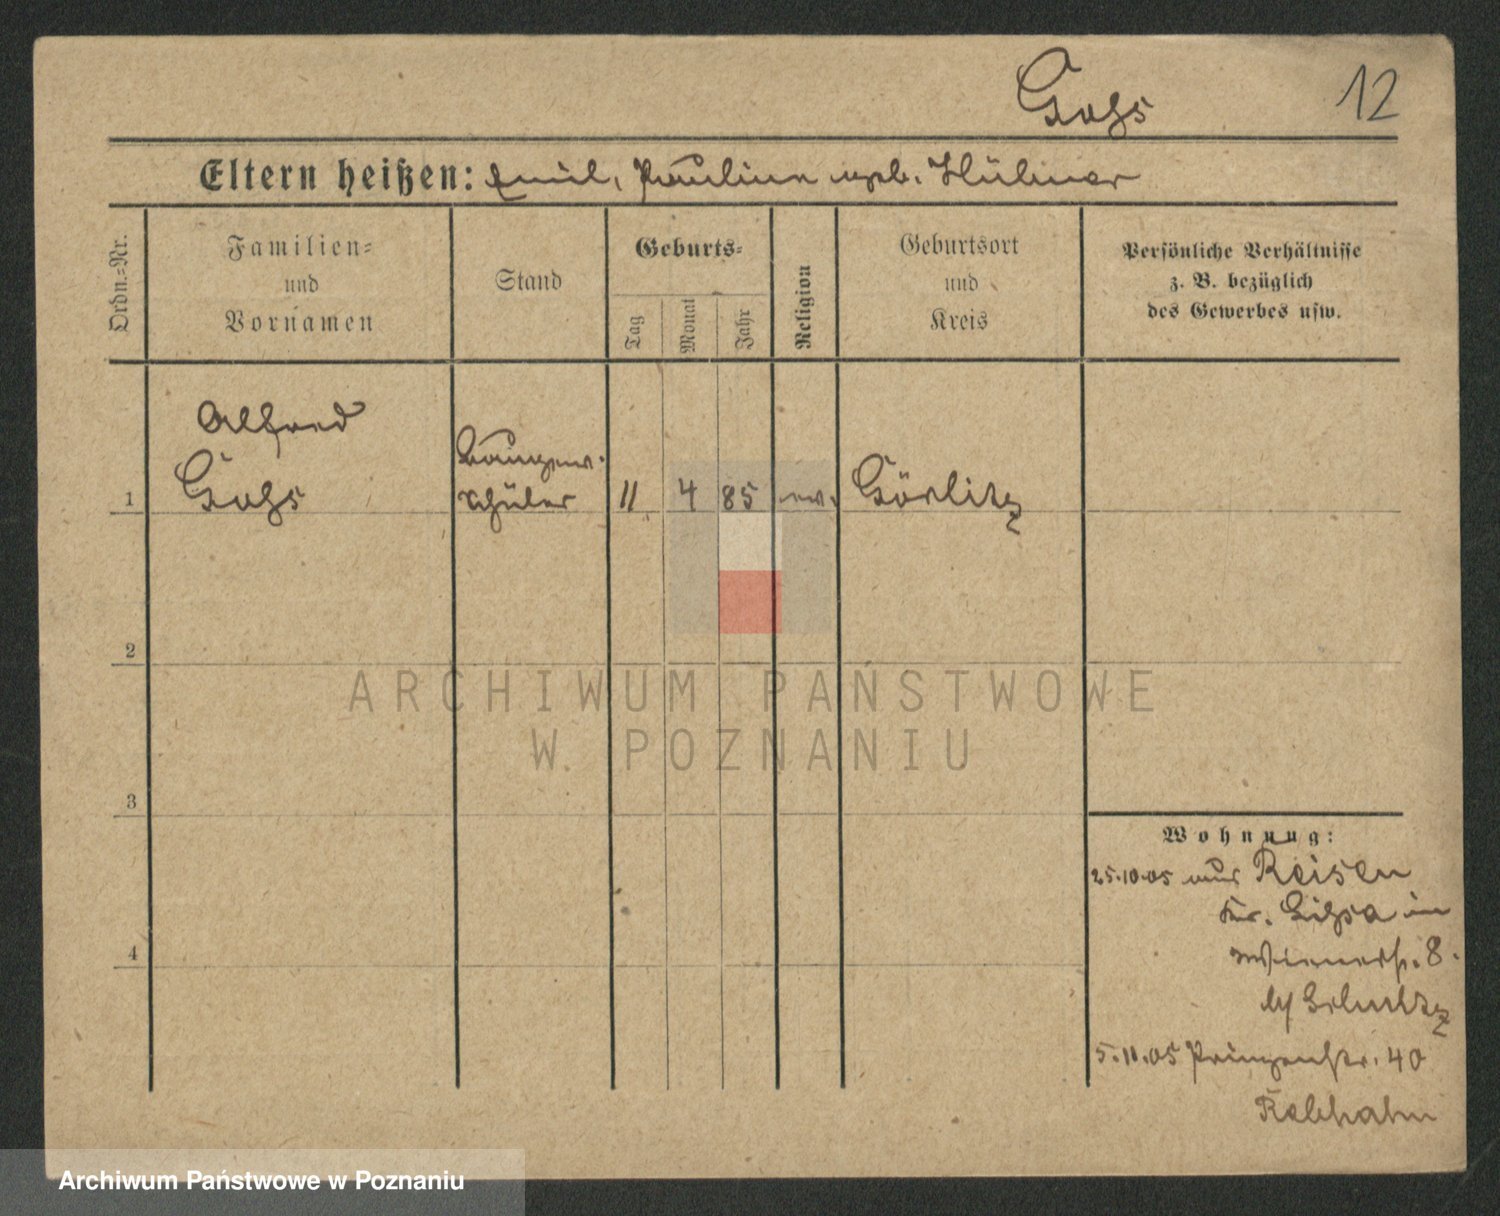 Gohs 12
Eltern heißen: Emil, Pauline geb. Hübner
Ordn.-Nr.
Familien-
und
Vornamen
Stand
Geburts-
Tag
Monat
Jahr
Religion
Geburtsort
und
Kreis
Persönliche Verhältnisse
z. B. bezüglich
des Gewerbes usw.
Alfred
Gohs
Baugew.
schüler
1
11 4 85 ev. Görlitz
2
3
4
Wohnung:
25.10.05 aus Reisen
Kr. Lissa in
8.
b/ Schultz
5.11.05 Prinzenstr. 40
Rebhahn
ARCHIWUM PAŃSTWOWE
W POZNANIU
Archiwum Państwowe w Poznaniu